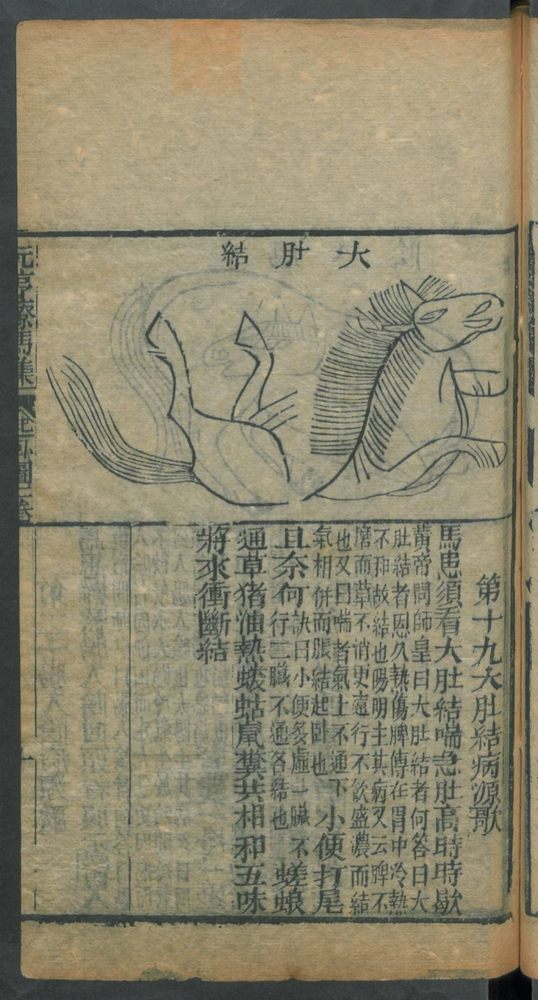 大肚結
第十九大肚結病源歌
馬患須看大肚結喘急肚高時時歇
黃帝問師皇曰大肚結者何答曰大
肚結者因久熱傷脾傳在胃中冷熱
不和故結也陽明主其病又云脾不
磨而草不消更遠行不飲盛濃而結
也又曰喘者氣上不通下
氣相併而脹結起臥也
小便打尾
且奈何
訣曰小便多虛一臟不
行二臟不通各結也
蜣蜋
通草猪油熱螻蛄鼠糞共相和五味
將來衝斷結
元亨療馬集